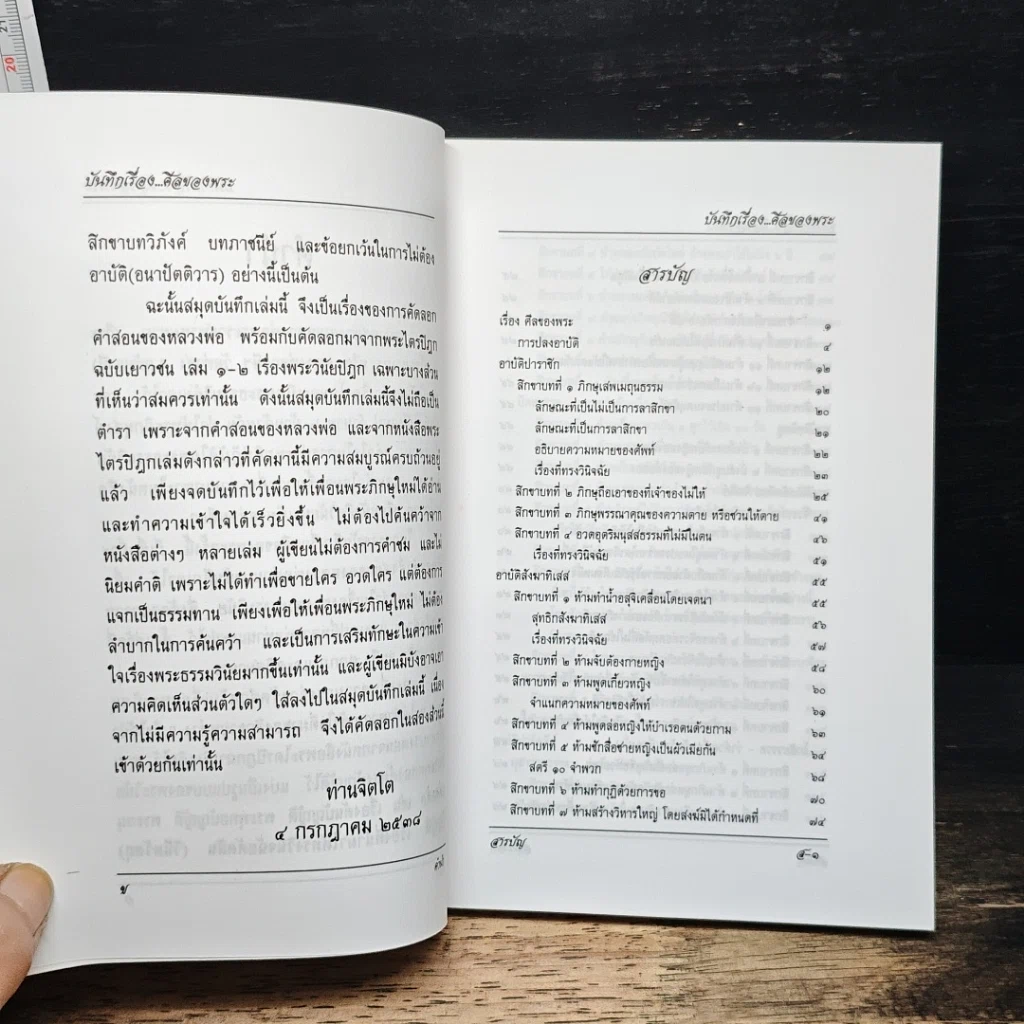 บันทึกเรื่อง...ศีลของพระ
สิกขาบทวิภังค์ บทภาชนีย์ และข้อยกเว้นในการไม่ต้อง
อาบัติ(อนาปัตติวาร) อย่างนี้เป็นต้น
ฉะนั้นสมุดบันทึกเล่มนี้ จึงเป็นเรื่องของการคัดลอก
คำสอนของหลวงพ่อ พร้อมกับคัดลอกมาจากพระไตรปิฎก
ฉบับเยาวชน เล่ม ๑-๒ เรื่องพระวินัยปิฎก เฉพาะบางส่วน
ที่เห็นว่าสมควรเท่านั้น ดังนั้นสมุดบันทึกเล่มนี้จึงไม่ถือเป็น
ตำรา เพราะจากคำสอนของหลวงพ่อ และจากหนังสือพระ
ไตรปิฎกเล่มดังกล่าวที่คัดมานี้มีความสมบูรณ์ครบถ้วนอยู่
แล้ว เพียงจดบันทึกไว้เพื่อให้เพื่อนพระภิกษุใหม่ได้อ่าน
และทำความเข้าใจได้เร็วยิ่งขึ้น ไม่ต้องไปค้นคว้าจาก
หนังสือต่างๆ หลายเล่ม ผู้เขียนไม่ต้องการคำชม และไม่
นิยมคำติ เพราะไม่ได้ทำเพื่อขายใคร อวดใคร แต่ต้องการ
แจกเป็นธรรมทาน เพียงเพื่อให้เพื่อนพระภิกษุใหม่ ไม่ต้อง
ลำบากในการค้นคว้า และเป็นการเสริมทักษะในความเข้า
ใจเรื่องพระธรรมวินัยมากขึ้นเท่านั้น และผู้เขียนมิบังอาจเอา
ความคิดเห็นส่วนตัวใดๆ ใส่ลงไปในสมุดบันทึกเล่มนี้ เนื่อง
จากไม่มีความรู้ความสามารถ จึงได้คัดลอกในสองส่วนนี้
เข้าด้วยกันเท่านั้น
ท่านจิตโต
๔ กรกฎาคม ๒๕๓๘
ช
บันทึกเรื่อง...ศีลของพระ
สารบัญ
เรื่อง ศีลของพระ ๑
การปลงอาบัติ ๔
อาบัติปาราชิก ๑๒
สิกขาบทที่ ๑ ภิกษุเสพเมถุนธรรม ๑๒
ลักษณะที่เป็นไม่เป็นการลาสิกขา ๒๐
ลักษณะที่เป็นการลาสิกขา ๒๑
อธิบายความหมายของศัพท์ ๒๒
เรื่องที่ทรงวินิจฉัย ๒๓
สิกขาบทที่ ๒ ภิกษุถือเอาของที่เจ้าของไม่ให้ ๒๕
สิกขาบทที่ ๓ ภิกษุพรรณาคุณของความตาย หรือชวนให้ตาย ๔๑
สิกขาบทที่ ๔ อวดอุตริมนุสสธรรมที่ไม่มีในตน ๔๖
เรื่องที่ทรงวินิจฉัย ๕๑
อาบัติสังฆาทิเสส ๕๕
สิกขาบทที่ ๑ ห้ามทำน้ำอสุจิเคลื่อนโดยเจตนา ๕๕
สุทธิกสังฆาทิเสส ๕๖
เรื่องที่ทรงวินิจฉัย ๕๗
สิกขาบทที่ ๒ ห้ามจับต้องกายหญิง ๕๘
สิกขาบทที่ ๓ ห้ามพูดเกี้ยวหญิง ๖๐
จำแนกความหมายของศัพท์ ๖๑
สิกขาบทที่ ๔ ห้ามพูดล่อหญิงให้บำเรอตนด้วยกาม ๖๓
สิกขาบทที่ ๕ ห้ามชักสื่อชายหญิงเป็นผัวเมียกัน ๖๔
สตรี ๑๐ จำพวก ๖๘
สิกขาบทที่ ๖ ห้ามทำกุฏิด้วยการขอ ๗๐
สิกขาบทที่ ๗ ห้ามสร้างวิหารใหญ่ โดยสงฆ์มิได้กำหนดที่ ๗๔
สารบัญ